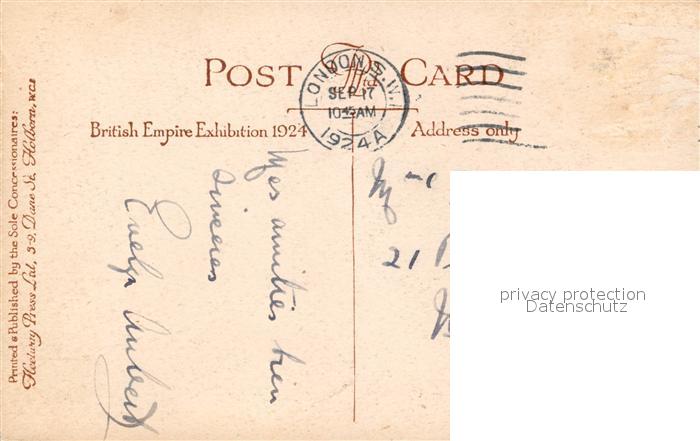 POST CARD
LONDON. S.W.1
SEP 17
10.45AM
1924A
British Empire Exhibition 1924
Address only
Printed & Published by the Sole Concessionaires:
Fleetway Press Ltd, 3-9, Dane St, Holborn, W.C.1
Mes amitiés bien
sincères
Evelyn Aubert
M
21
privacy protection
Datenschutz